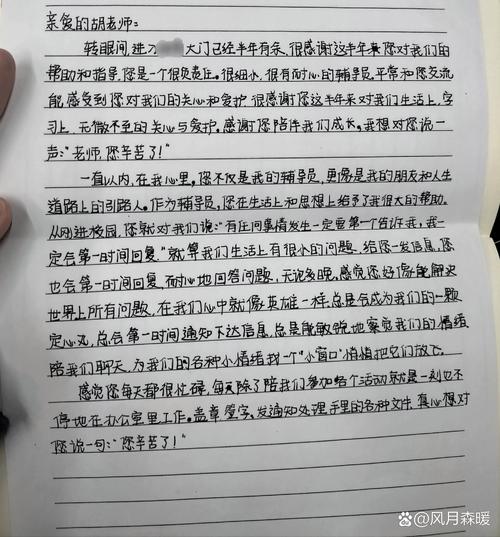 亲爱的胡老师:
转眼间进入 大门已经半年有余,很感谢这半年来您对我们的
帮助和指导,您是一个很负责任。很细心,很有耐心的辅导员,平常和您交流
能感受到您对我们的关心和爱护,很感谢您这半年来对我们生活上,学
习上,无微不至的关心与爱护。感谢您陪伴我们成长。我想对您说一
声:"老师,您辛苦了!"
一直以内,在我心里,您不仅是我的辅导员,更像是我的朋友和人生
道路上的引路人。作为辅导员,您在生活和思想上给予了我很大的帮助。
从刚进校园,您就对我们说:"有任何事情发生一定要第一个告诉我,我一
定会第一时间回复"就算我们生活上有很小的问题,给您一发信息,您
也会第一时间回复,耐心地回答问题,无论多晚,感觉您好像能解决
世界上所有问题,在我们心中就像英雄一样,总是会成为我们的一颗
定心丸,总会第一时间通知下达信息,总是能敏锐地察觉我们的情绪
陪我们聊天,为我们的各种小情绪找一个"小窗口"悄悄把它们放飞。
感觉您每天都很忙碌,每天除了陪我们参加各个活动就是一刻不
停地在办公室里工作。盖章签字、发通知处理手里的各种文件,真心想对
您说一句:"您辛苦了!"
@风月森暖